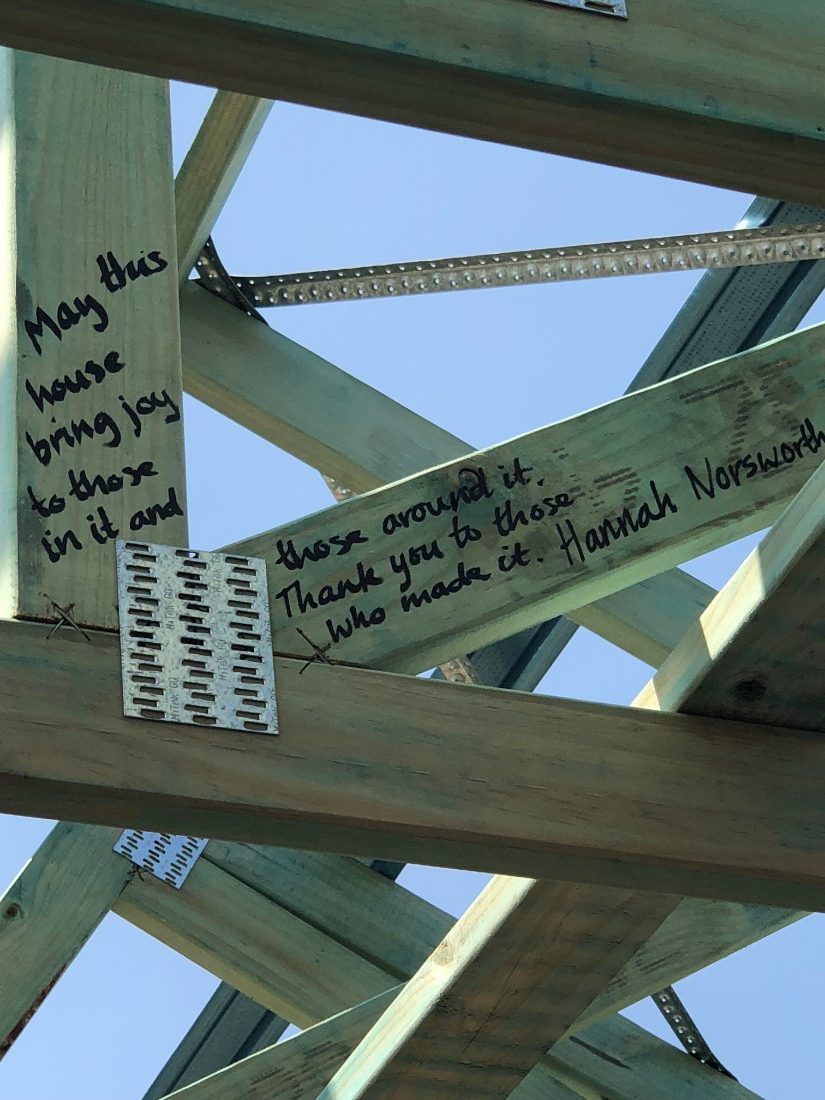 May this
house
bring joy
to those
in it and
those around it.
Thank you to those
who made it. Hannah Norsworth